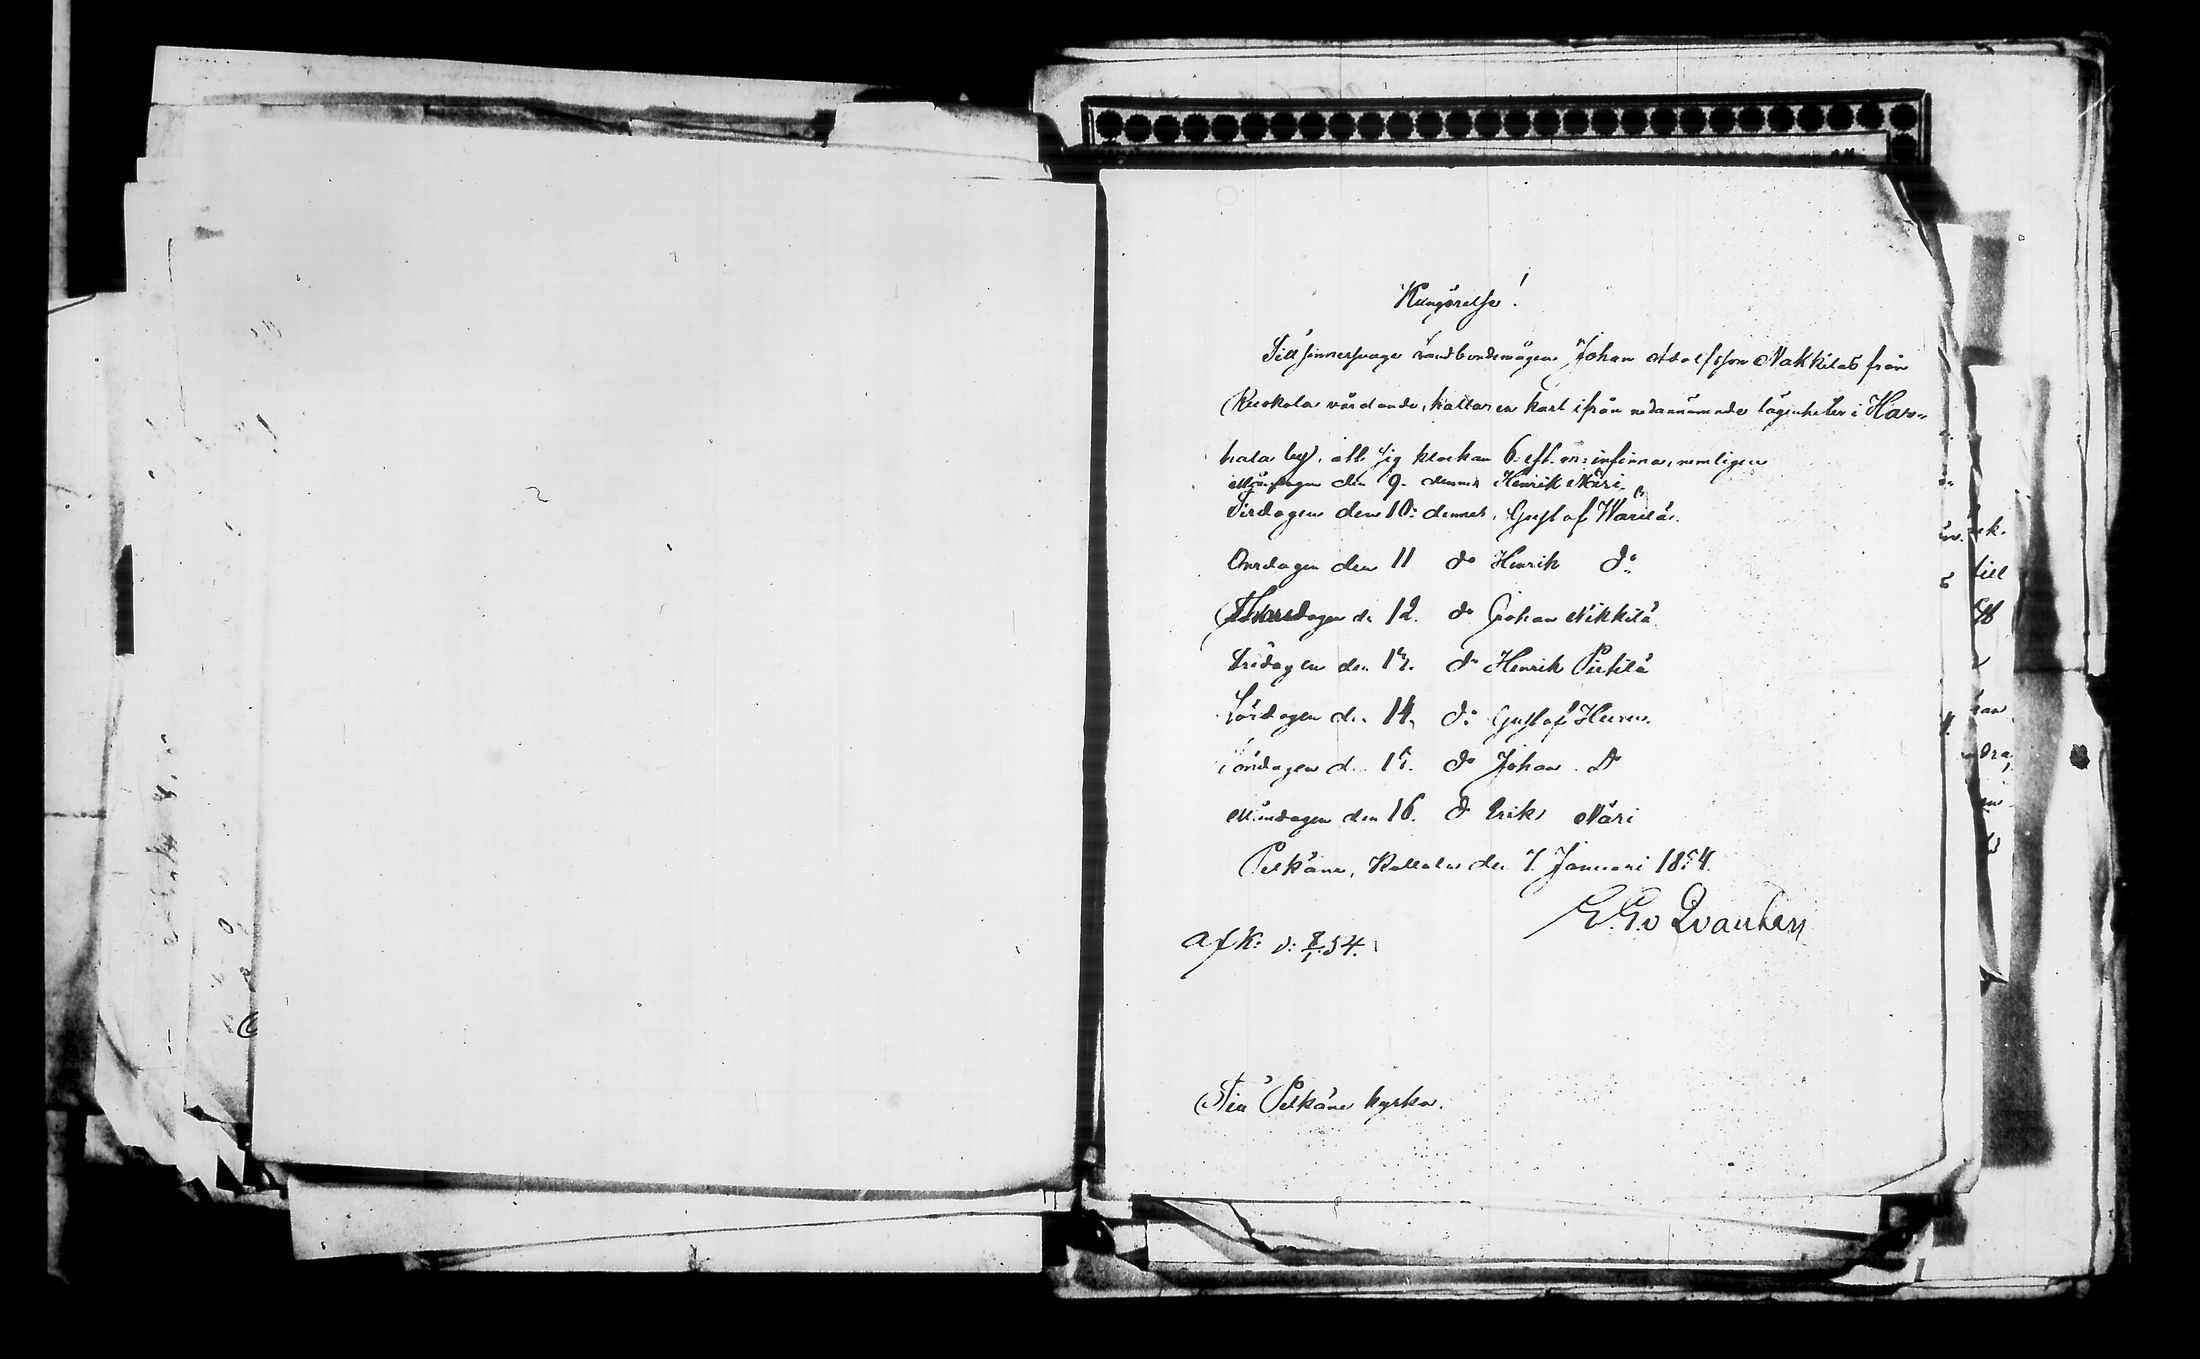 Kungörelse!
Till sinnessvage landbondemågen Johan Adolfsson Nakkilas från
Kuokola vårdande, kallas en karl ifrån nedannämnde lägenheter i Har-
hala by, att sig klockan 6. eft. m: infinna, nemligen
Måndagen den 9. dennes Henrik Näri.
Tisdagen den 10: dennes, Gustaf Warilä.
Onsdagen den 11 do Henrik do
Thorsdagen d. 12. do Johan Nikkilä
Fredagen den 13. do Henrik Pietilä
Lördagen d. 14. do Gustaf
Söndagen d. 15. do Johan Do
Måndagen den 16. do Erik Näri
Pelkäne, Kollola den 7. Januari 1854.
Af K: d: 8/1 54.
Till Pelkäne kyrka.
till